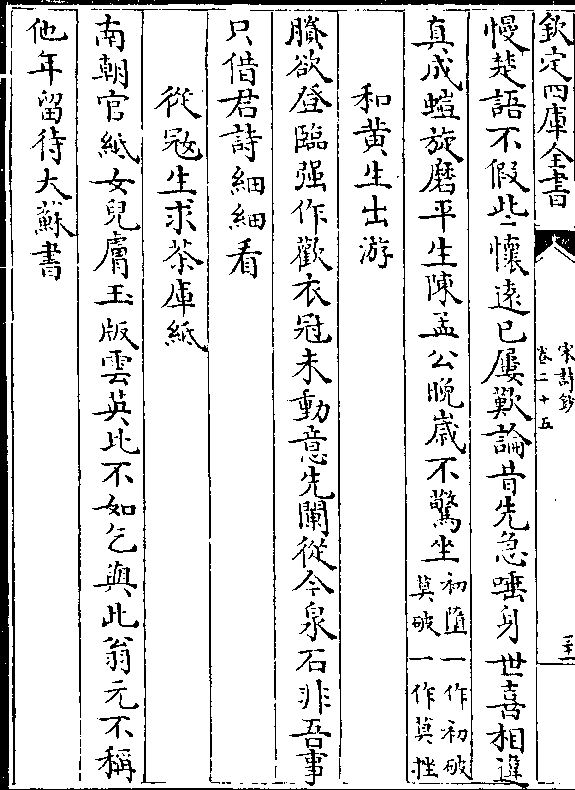 欽定四庫全書
宋詩鈔
卷二十五
慢楚語不假些懷遠已屢歎論昔先急唾身世喜相違
真成螘旋磨平生陳孟公晚歲不驚坐
初墮一作初破
莫破一作莫挫
和黄生出游
賸欲登臨强作歡衣冠未動意先闌從今泉石非吾事
只借君詩細細看
從寇生求茶庫紙
南朝官紙女兒膚玉版雲英比不如乞與此翁元不稱
他年留待大蘇書